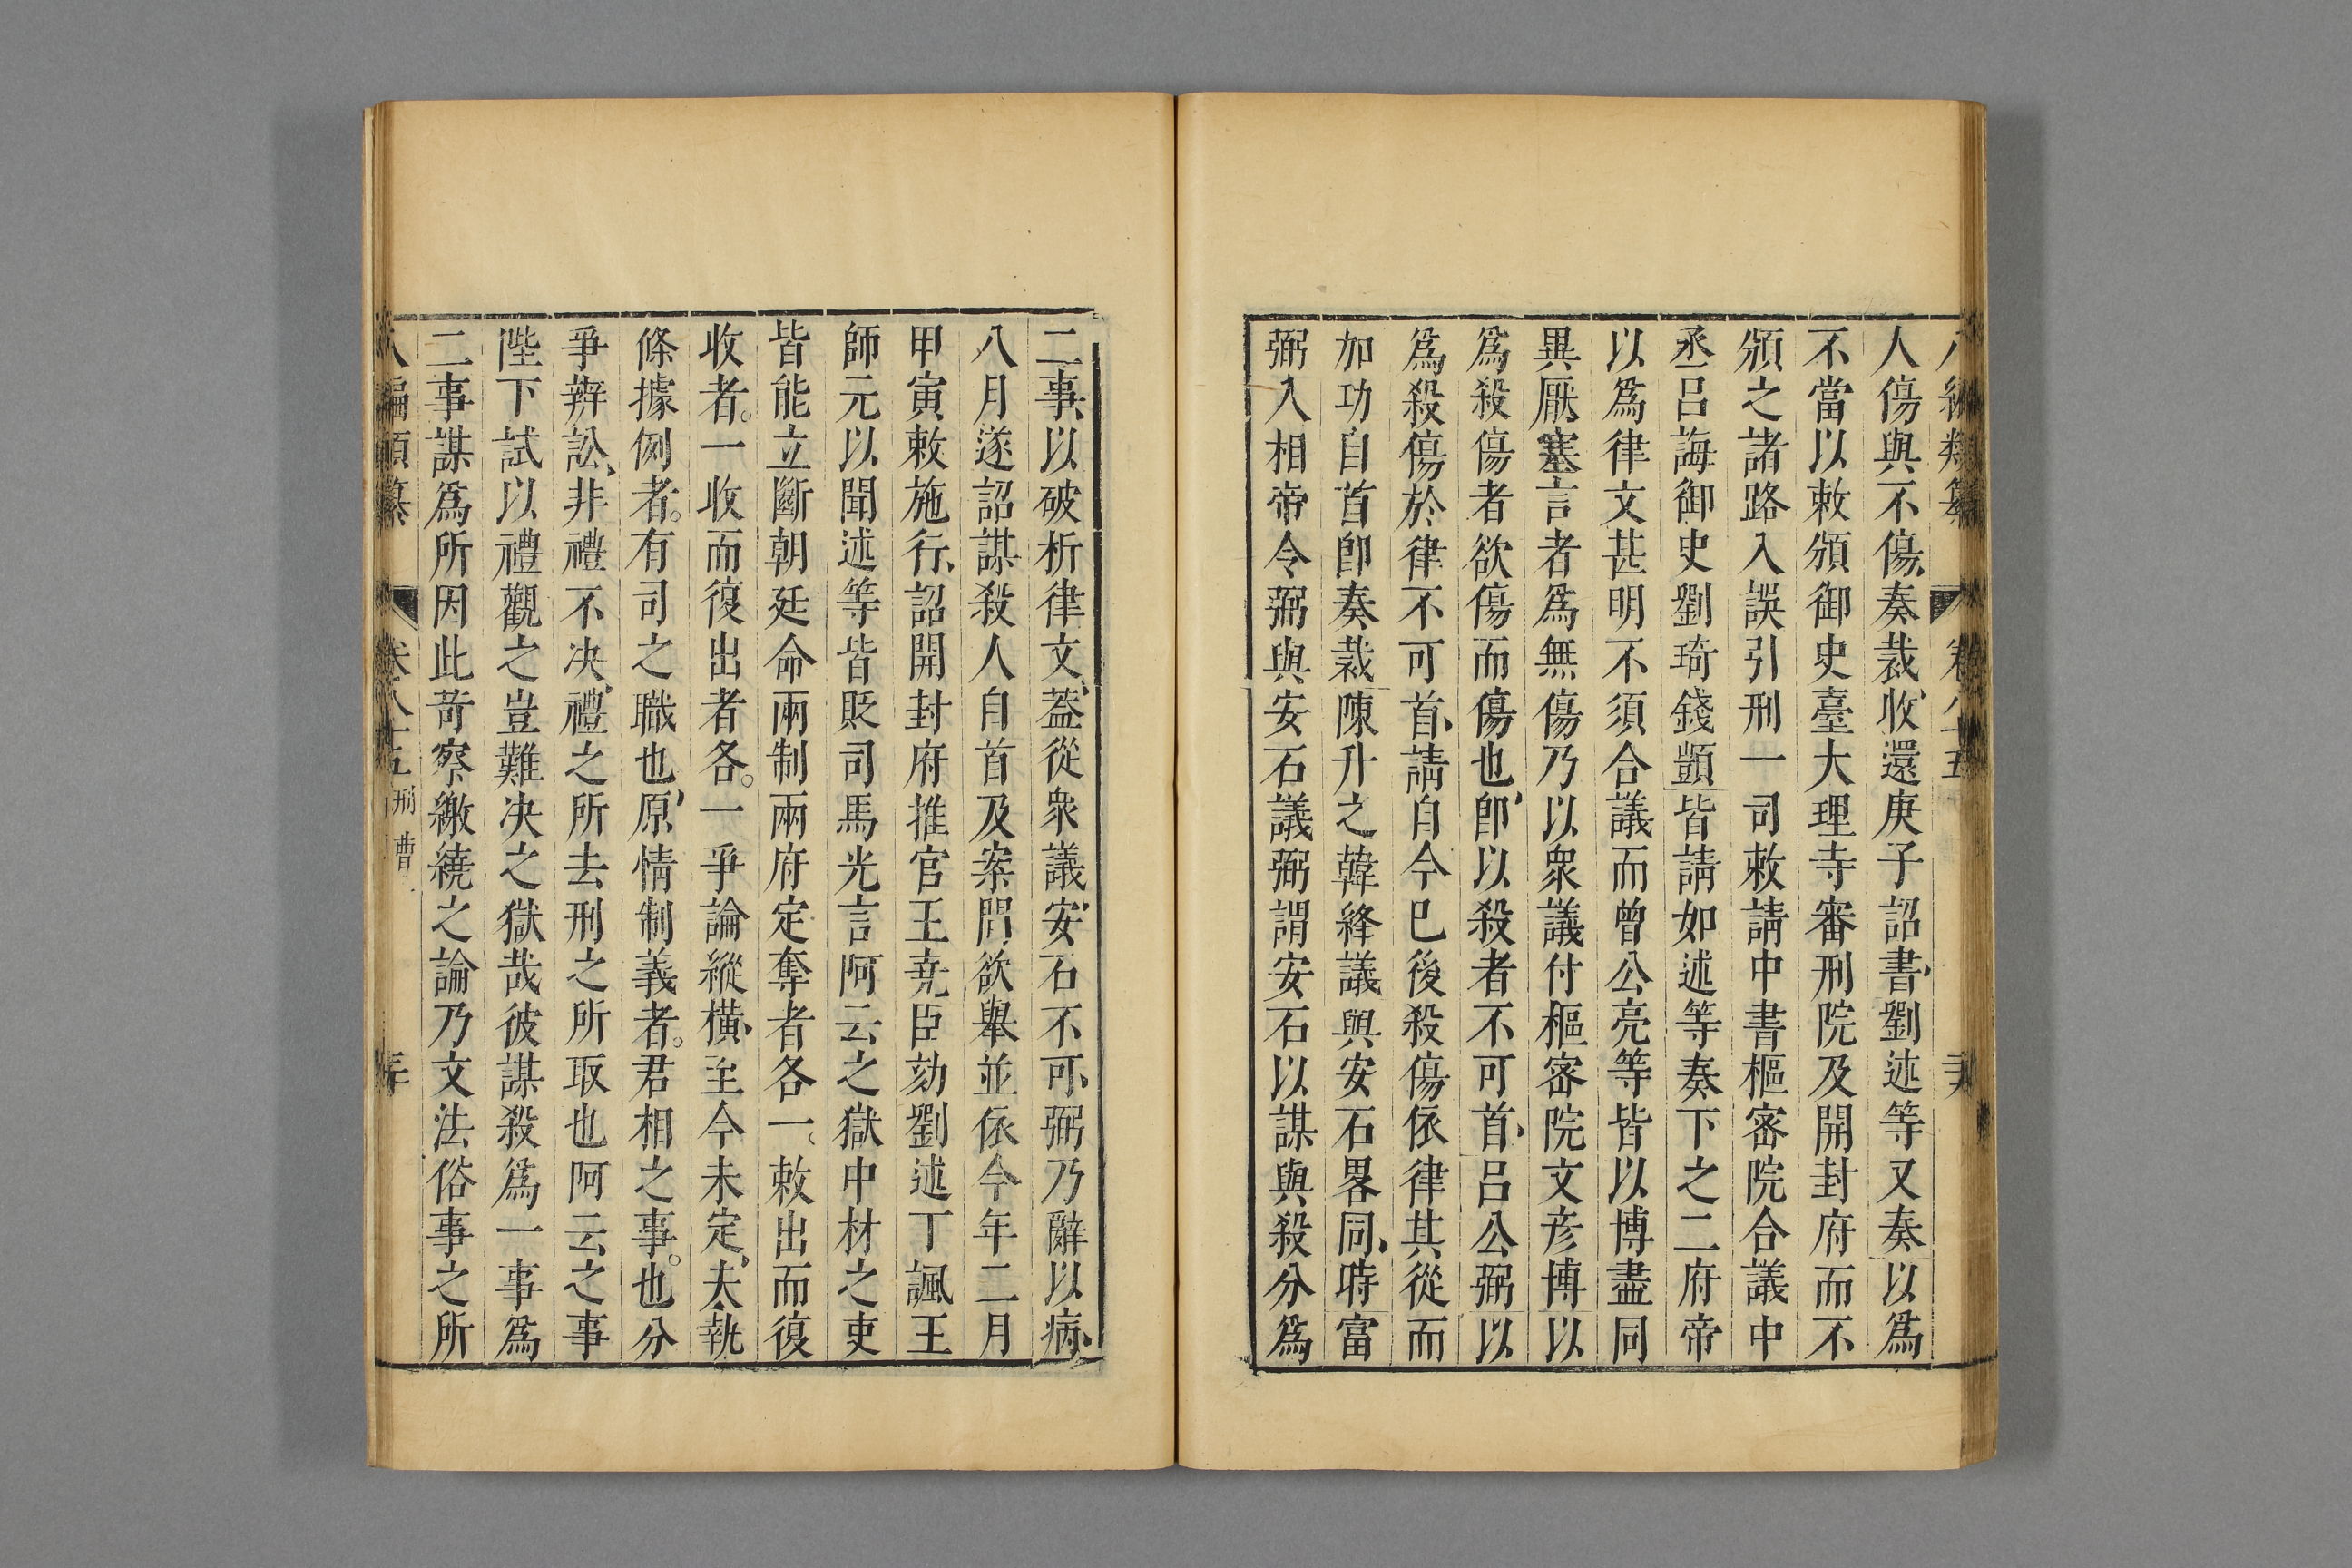 八編類纂 卷八十五
人傷與不傷奏裁收還庚子詔書劉述等又奏以爲
不當以敕頒御史臺大理寺審刑院及開封府而不
頒之諸路入誤引刑一司敕請中書樞密院合議中
丞吕誨御史劉琦錢顗皆請如述等奏下之二府帝
以爲律文甚明不須合議而曾公亮等皆以博盡同
異厭塞言者爲無傷乃以衆議付樞密院文彥博以
爲殺傷者欲傷而傷也、卽以殺者不可首、吕公弼以
爲殺傷於律不可首、請自今已後殺傷依律其從而
加功自首卽奏裁陳升之韓絳議與安石畧同、時富
弼入相帝令弼與安石議弼謂安石以謀與殺分爲
二事、以破析律文、蓋從衆議、安石不可、弼乃辭以病、
八月遂詔謀殺人自首及案問欲舉並依今年二月
甲寅敕施行、詔開封府推官王尭臣劾劉述丁諷王
師元以聞述等皆貶司馬光言阿云之獄中材之吏
皆能立斷朝廷命兩制兩府定奪者各一、敕出而復
收者。一收而復出者各。一爭論縱橫、至今未定、夫執
條據例者。有司之職也、原情制義者。君相之事。也分
爭辨訟、非禮不决、禮之所去刑之所取也阿云之事
陛下試以禮觀之豈難决之獄哉彼謀殺爲一事爲
二事謀爲所因此苛察繳繞之論乃文法俗事之所
八編類纂 卷八十五 刑曹